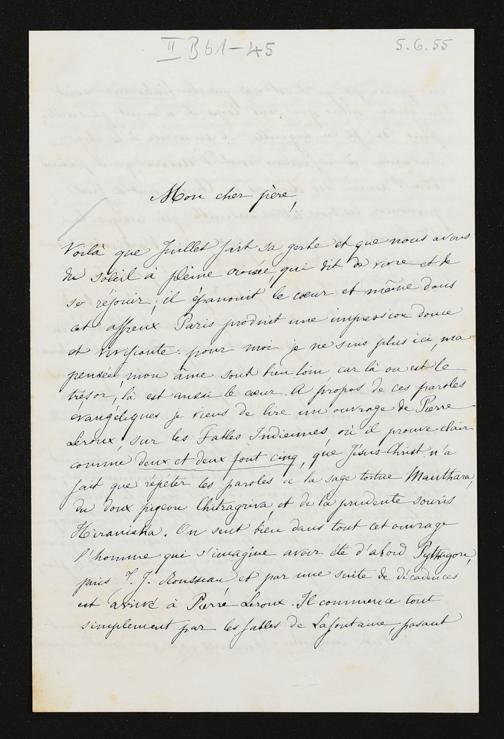 II B61-45
5.6.55
Mon cher père,
Voilà que Juillet fait sa geste et que nous avons
du soleil à pleine croisée, qui dit de vivre et de
se réjouir; il épanouit le cœur et même dans
cet affreux Paris produit une impression douce
et vivifiante. pour moi je ne suis plus ici, ma
pensée, mon âme sont bien loin car là où est le
trésor, là est aussi le cœur. A propos de ces paroles
évangéliques je viens de lire un ouvrage de Pierre
Leroux sur les Fables Indiennes, où il prouve clair
comme deux et deux font cinq, que Jésus-Christ n'a
fait que répéter les paroles de la sage tortue Manthara,
du doux pigeon Chitragriva, et de la prudente souris
Hiraniaka. On sent bien dans tout cet ouvrage
l'homme qui s'imagine avoir été d'abord Pythagore,
puis J. J. Rousseau et par une suite de décadences
est arrivé à Pierre Leroux. Il commence tout
simplement par les fables de Lafontaine, passant